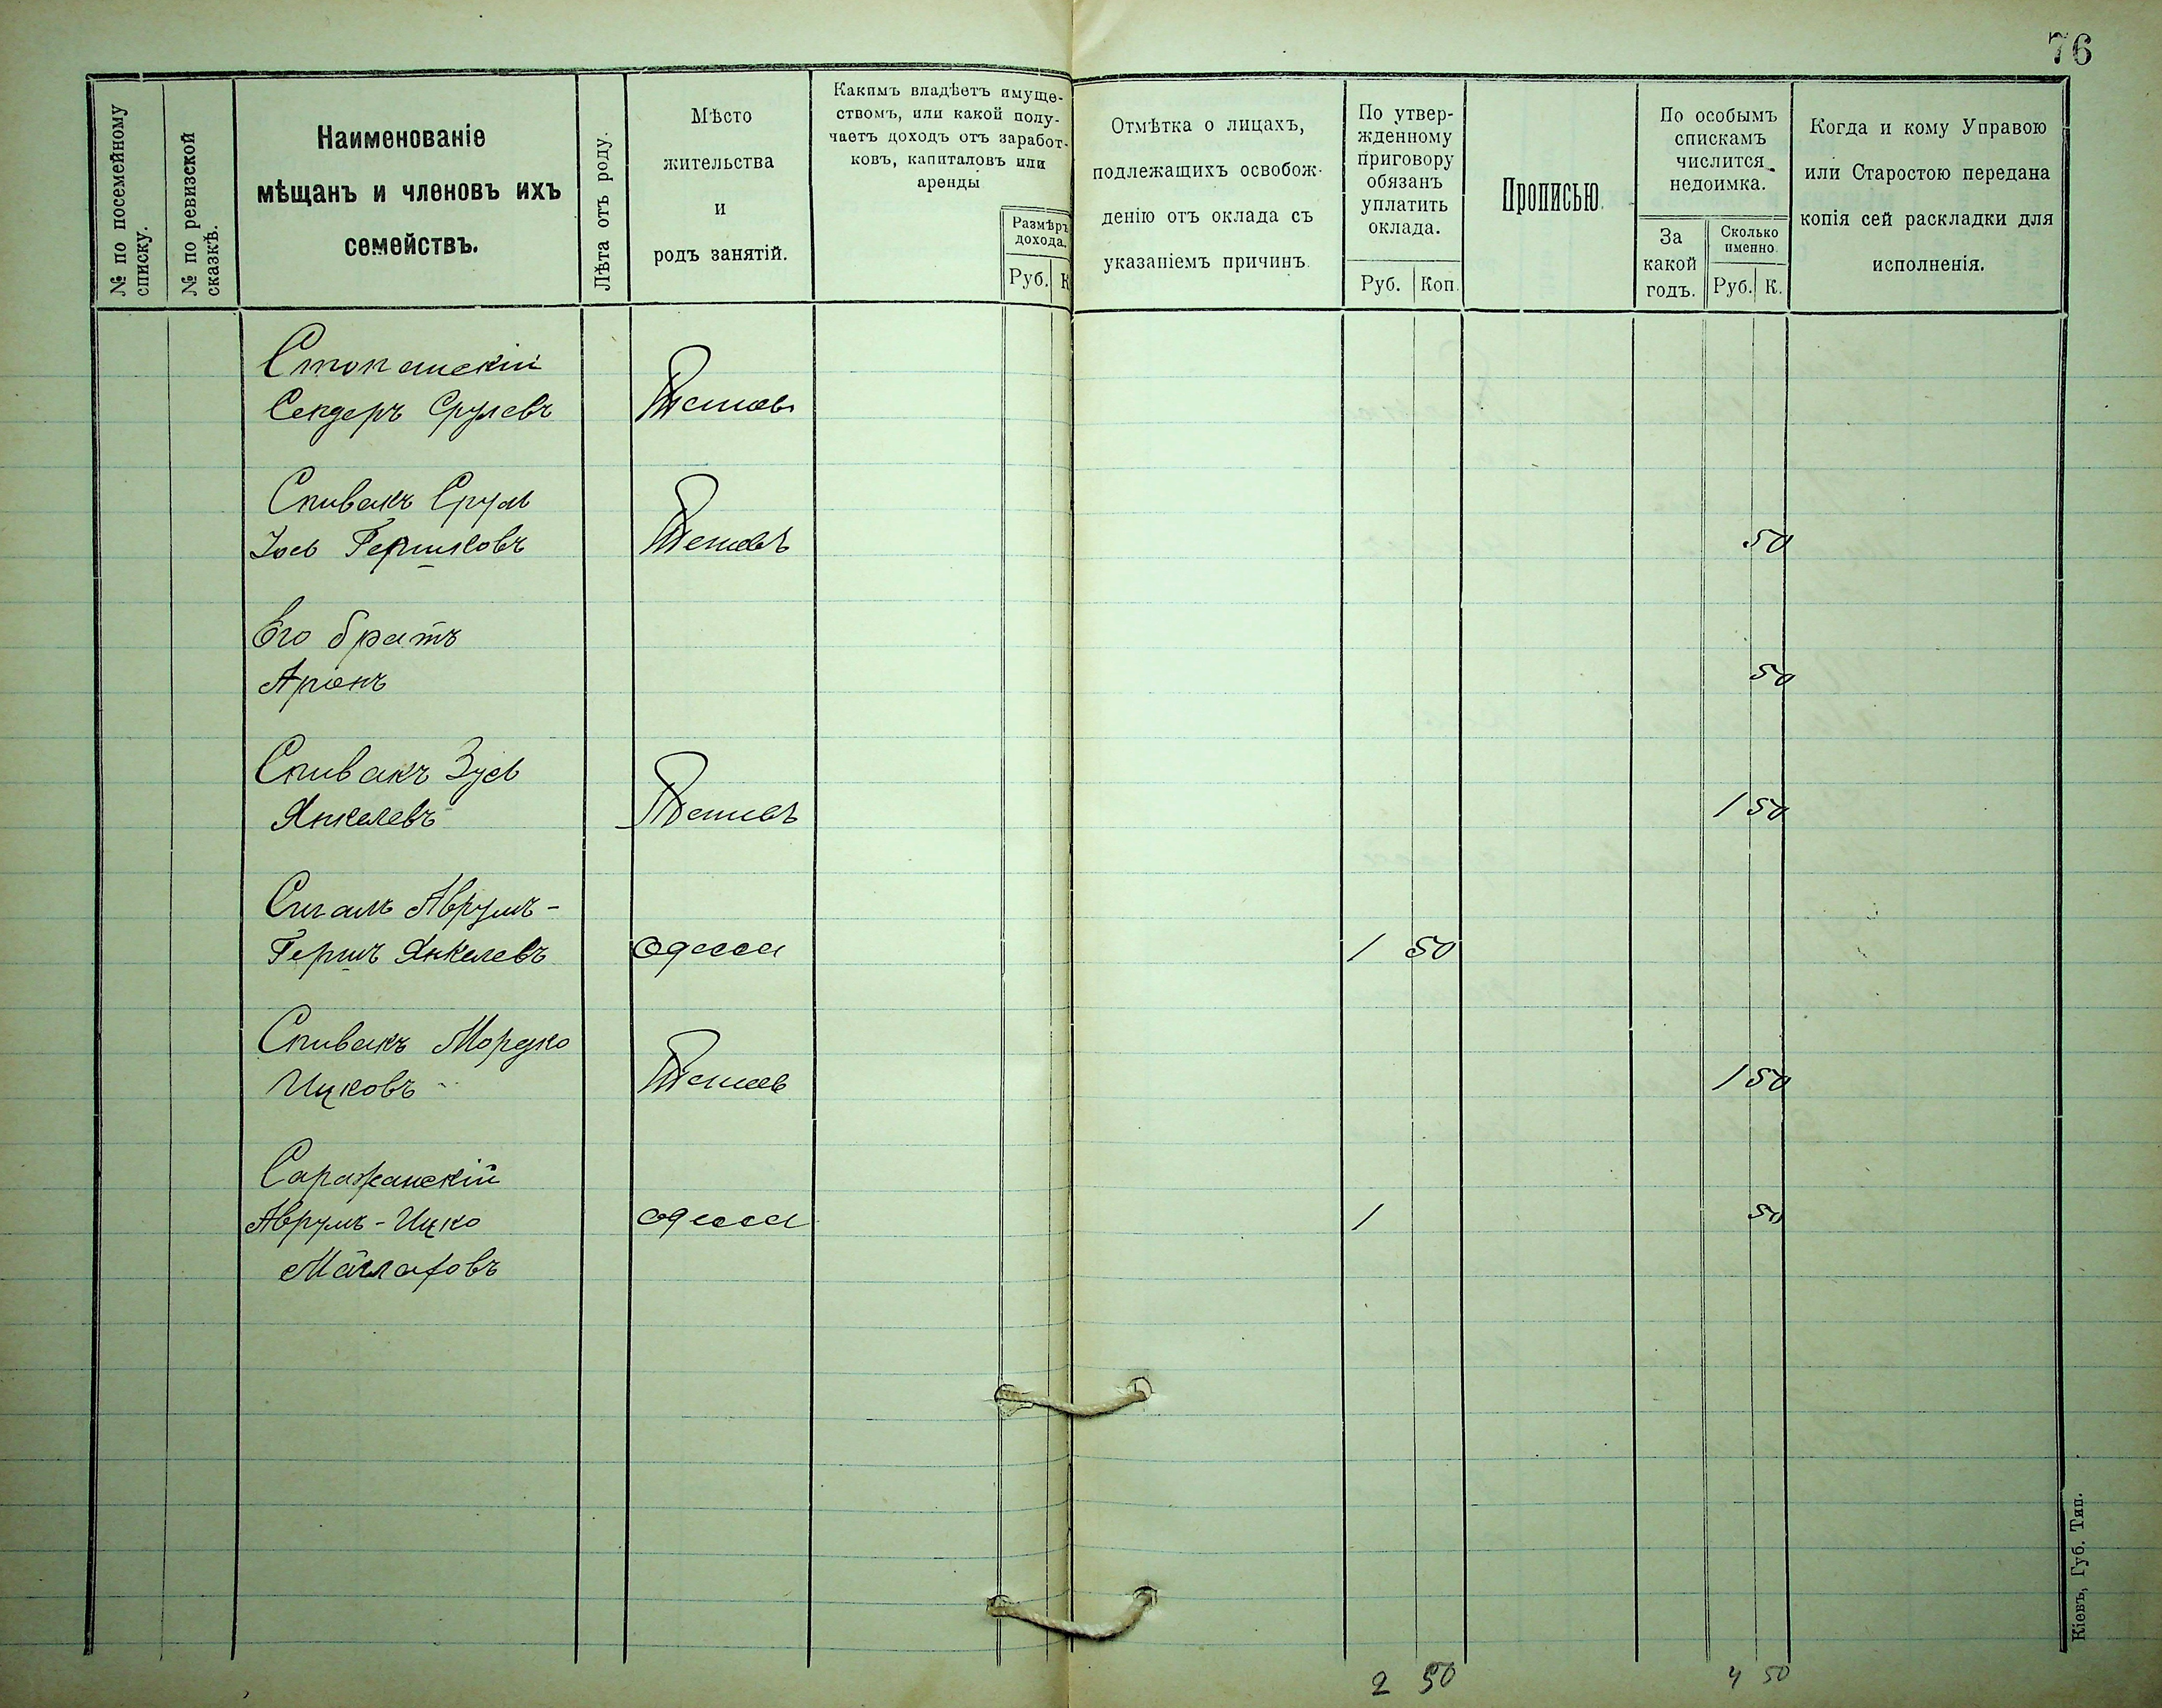 76
№ по посемейному списку.
№ по ревизской сказкѣ.
Наименованіе
мѣщанъ и членовъ ихъ
семействъ.
Лѣта отъ роду.
Мѣсто
жительства
и
родъ занятій.
Какимъ владѣетъ имуще-
ствомъ, или какой полу-
чаетъ доходъ отъ заработ-
ковъ, капиталовъ или
аренды
Размѣръ
дохода.
Руб. К
Отмѣтка о лицахъ,
подлежащихъ освобож-
денію отъ оклада съ
указаніемъ причинъ.
По утвер-
жденному
приговору
обязанъ
уплатить
оклада.
Руб. Коп.
Прописью.
По особымъ
спискамъ
числится
недоимка.
За
какой
годъ.
Сколько
именно.
Руб. К.
Когда и кому Управою
или Старостою передана
копія сей раскладки для
исполненія.
Сендеръ Срулевъ
Спивакъ Сруль
Іось Гершковъ 50
Его братъ
Аріонъ 50
Спивакъ Зусь
Янкелевъ 1 50
Сигалъ Аврумъ-
Гершъ Янкелевъ Одесса 1 50
Спивакъ Мордко
Ицковъ 1 50
Саражанскій
Аврумъ-Ицко Одесса 1 50
2 50 4 50
Кіевъ, Губ. Тип.